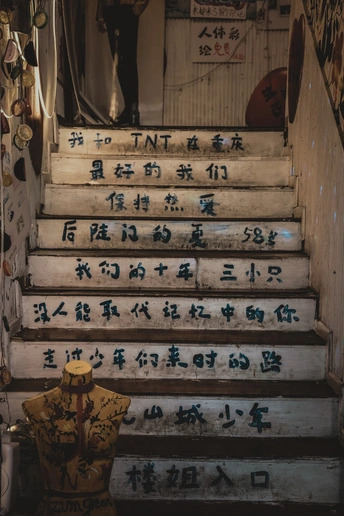 人体彩
绘免
我和TNT在重庆
最好的我们
保持热爱
后陡门的夏 58号
我们的十年 三小只
没人能取代记忆中的你
走过少年们来时的路
山城少年
楼姐入口